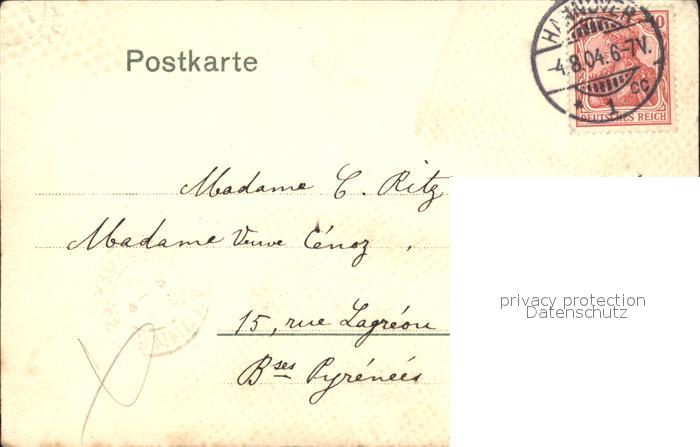 Postkarte
HANNOVER
4.8.04.6-7V.
* 1 CC
DEUTSCHES REICH
Madame C. Ritz
Madame Veuve Cénoz,
15, rue Lagréou
Bses Pyrénéés
privacy protection
Datenschutz